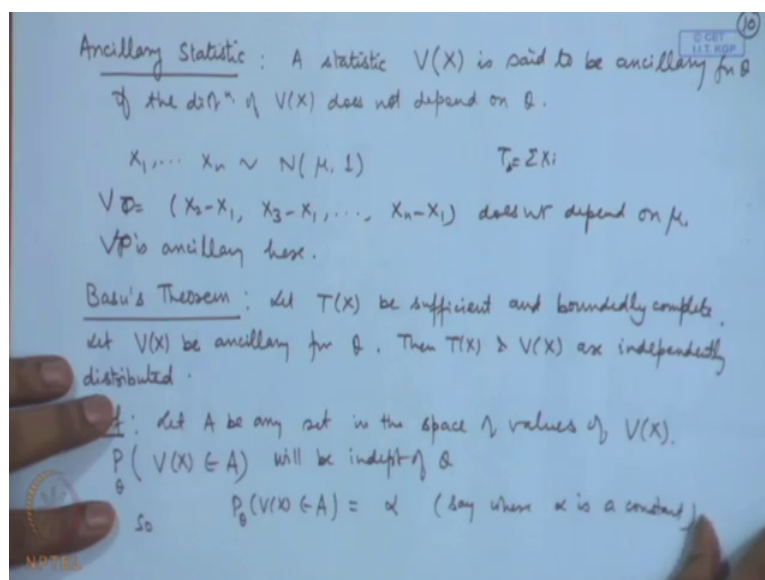 10
© CET
I.I.T. KGP
Ancillary Statistic : A statistic V(X) is said to be ancillary for θ
if the distⁿ of V(X) does not depend on θ.
X₁, ... Xₙ ~ N(μ, 1) T = ΣXᵢ
V = (X₂-X₁, X₃-X₁, ..., Xₙ-X₁) does not depend on μ.
V is ancillary here.
Basu's Theorem : Let T(X) be sufficient and boundedly complete.
Let V(X) be ancillary for θ. Then T(X) & V(X) are independently
distributed.
Let A be any set in the space of values of V(X).
P_θ (V(X) ∈ A) will be indept of θ
So P_θ (V(X) ∈ A) = α (say where α is a constant)
NPTEL